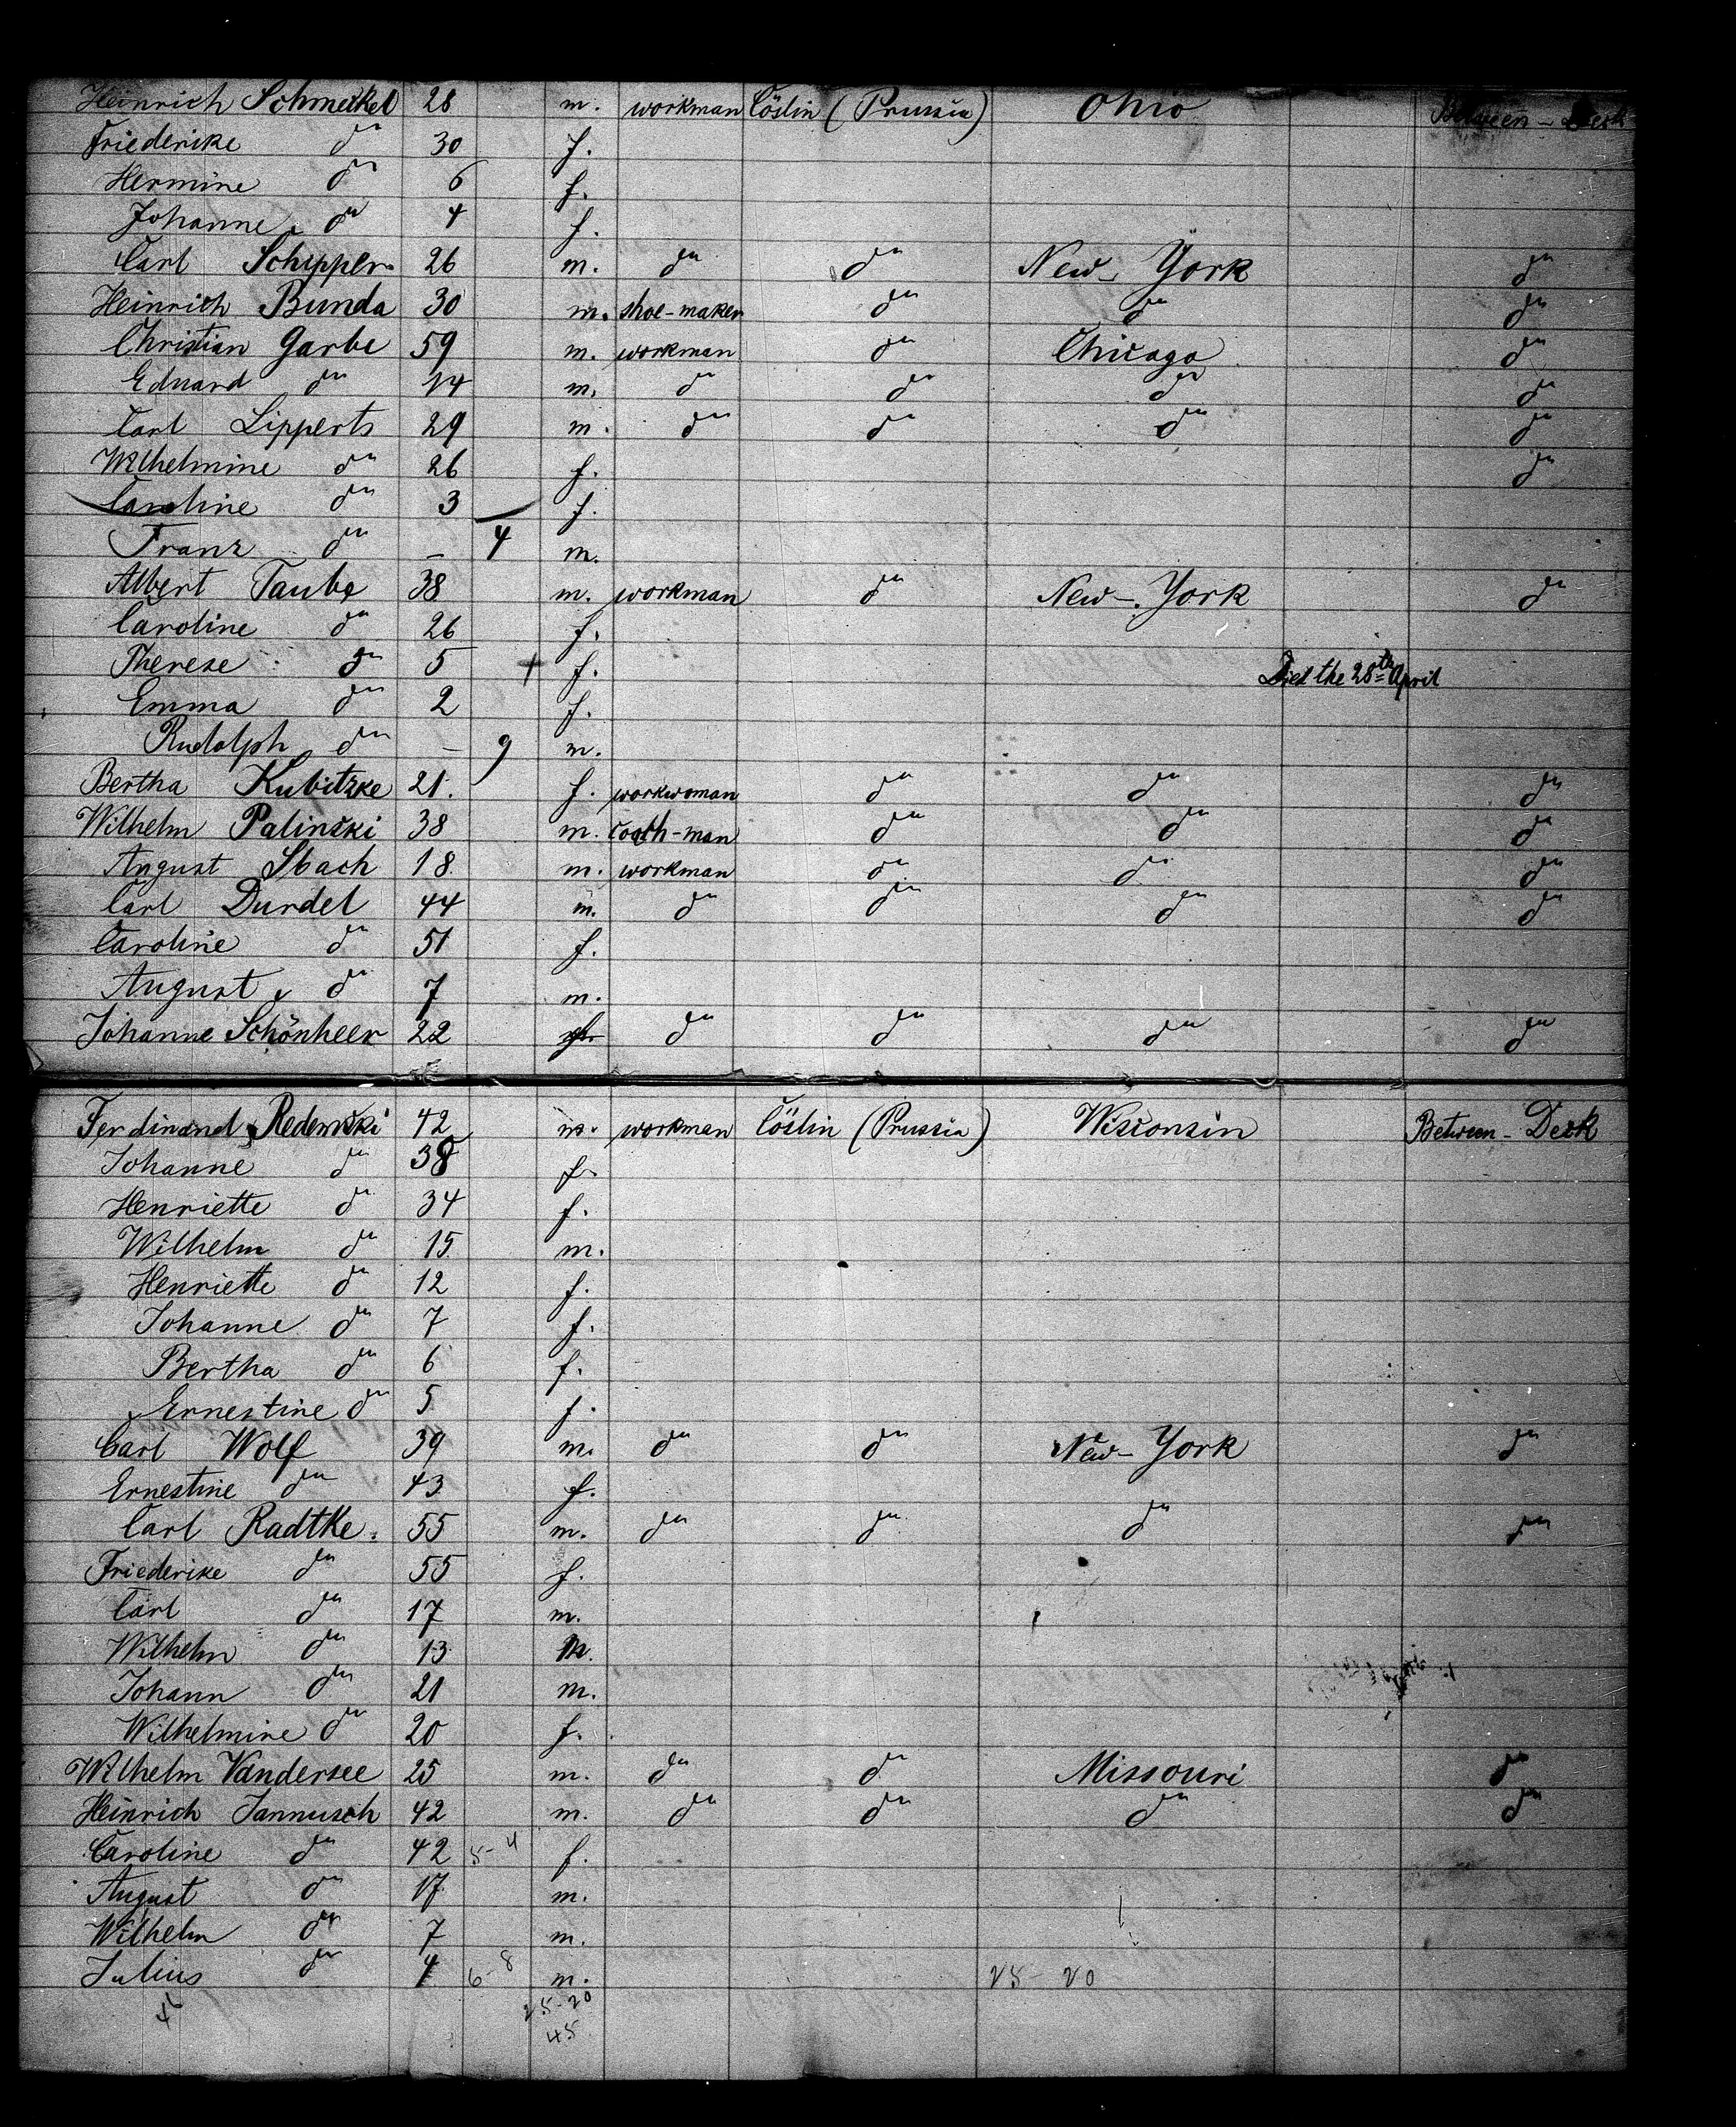 Heinrich Schmeckel 28 m. workman Cöslin (Prussia) Ohio Between-Deck
Friederike do 30 f.
Hermine do 6 f.
Johanne do 4 f.
Carl Schipper 26 m. do do New-York do
Heinrich Bunda 30 m. shoe-maker do do do
Christian Garbe 59 m. workman do Chicago do
Eduard do 14 m. do do do do
Carl Lipperts 29 m. do do do do
Wilhelmine do 26 f. do
Caroline do 3 f.
Franz do – 4 m.
Albert Taube 38 m. workman do New-York do
Caroline do 26 f.
Therese do 5 + f. Died the 28th April
Emma do 2 f.
Rudolph do – 9 m.
Bertha Kubitzke 21. f. workwoman do do do
Wilhelm Palinski 38 m. coach-man do do do
August Sbach 18 m. workman do do do
Carl Durdel 44 m. do do do do
Caroline do 51 f.
August do 7 m.
Johanne Schönheer 22 f. do do do do
Ferdinand 42 m. workman Cöslin (Prussia) Wisconsin Between-Deck
Johanne do 38 f.
Henriette do 34 f.
Wilhelm do 15 m.
Henriette do 12 f.
Johanne do 7 f.
Bertha do 6 f.
Ernestine do 5 f.
Carl Wolf 39 m. do do New-York do
Ernestine do 43 f.
Carl Radtke 55 m. do do do do
Friederike do 55 f.
Carl do 17 m.
Wilhelm do 13 m.
Johann do 21 m.
Wilhelmine do 20 f.
Wilhelm Vandersee 25 m. do do Missouri do
Heinrich Jannusch 42 m. do do do do
Caroline do 42 5-4 f.
August do 17 m.
Wilhelm do 7 m.
Julius do 4 6-8 m. 25-20
25-20
45